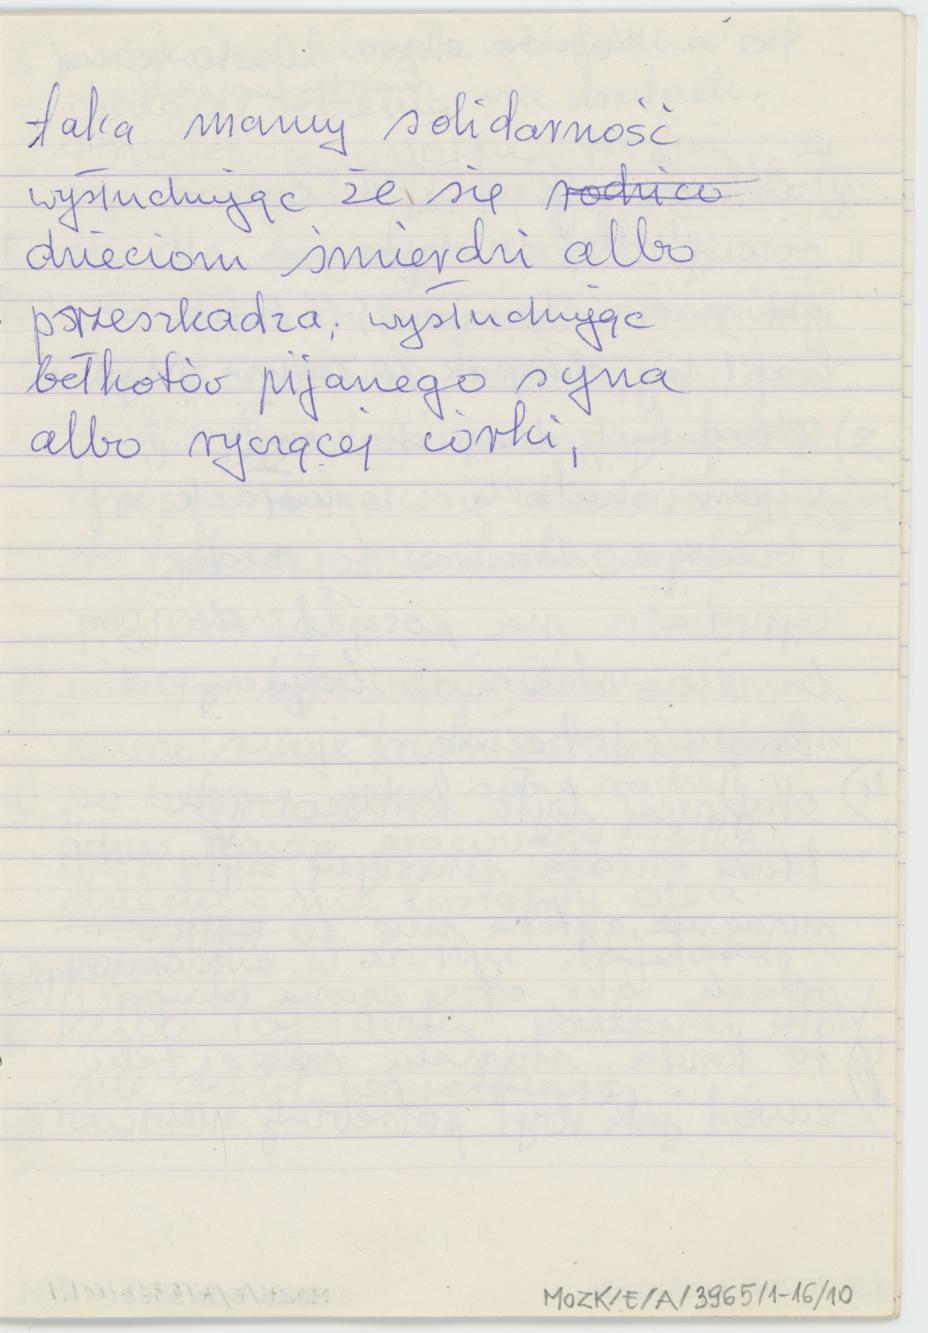 taka mamy solidarność
wysłuchując że się rodzico
dzieciom śmierdzi albo
przeszkadza, wysłuchując
bełkotów pijanego syna
albo ryczącej córki,
MOZK/E/A/3965/1-16/10